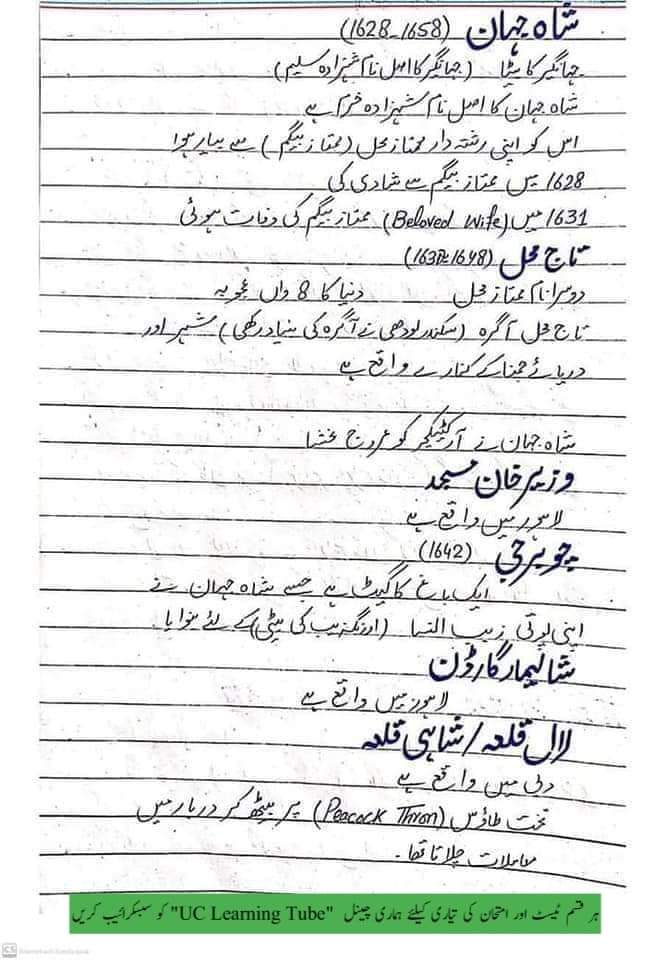 شاہ جہان (1628-1658)
جہانگیر کا بیٹا (جہانگیر کا اصل نام شہزادہ سلیم)
شاہ جہان کا اصل نام شہزادہ خرم ہے
اس کو اپنی رشتہ دار ممتاز محل (ممتاز بیگم) سے پیار ہوا
1628 میں ممتاز بیگم سے شادی کی
1631 میں (Beloved Wife) ممتاز بیگم کی وفات ہوئی
تاج محل (1631-1648)
دوسرا نام ممتاز محل دنیا کا 8 واں عجوبہ
تاج محل آگرہ (سکندر لودھی نے آگرہ کی بنیاد رکھی) شہر اور
دریائے جمنا کے کنارے واقع ہے
شاہ جہان نے آرکٹیکچر کو عروج بخشا
وزیر خان مسجد
لاہور میں واقع ہے
چوبرجی (1642)
ایک باغ کا گیٹ ہے جسے شاہ جہان نے
اپنی پوتی زیب النسا (اورنگزیب کی بیٹی) کے لئے بنوایا۔
شالیمار گارڈن
لاہور میں واقع ہے
لال قلعہ / شاہی قلعہ
دہلی میں واقع ہے
تخت طاؤس (Peacock Thron) پر بیٹھ کر دربار میں
معاملات چلاتا تھا۔
ہر قسم ٹیسٹ اور امتحان کی تیاری کیلئے ہماری چینل "UC Learning Tube" کو سبسکرائیب کریں
CS